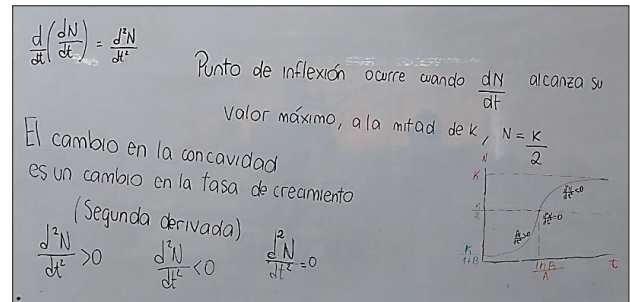 d/dt (dN/dt) = d²N/dt²
Punto de inflexión ocurre cuando dN/dt alcanza su
valor máximo, a la mitad de K, N = K/2
El cambio en la concavidad
es un cambio en la tasa de crecimiento
(Segunda derivada)
d²N/dt² > 0   d²N/dt² < 0   d²N/dt² = 0
N
K
K/2
K/1+B
d²N/dt² < 0
d²N/dt² = 0
d²N/dt² > 0
ln B/A
t